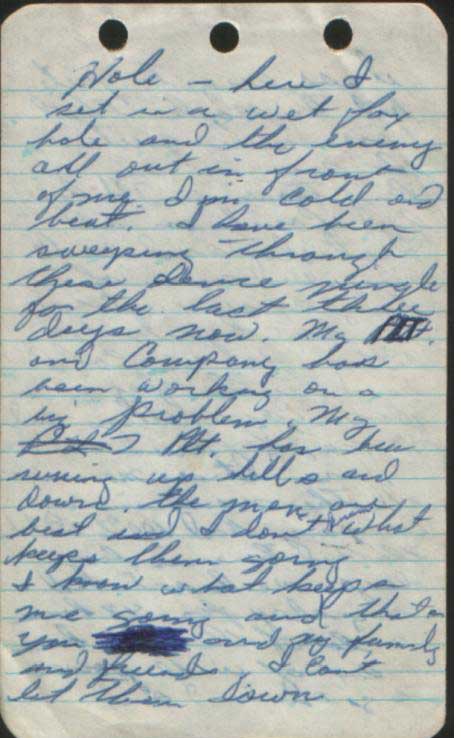 Hole – here I
set in a wet fox
hole and the enemy
all out in front
of me. I'm cold and
beat. I have been
sweeping through
these dence jungle
for the last three
days now. My Plt.
and Company has
been working on a
problem. My
Plt. has been
running up hills and
down. The men are
beat and I don't what
keeps them going
I know what keeps
me going and that's
you and my family
and friends I can't
let them down